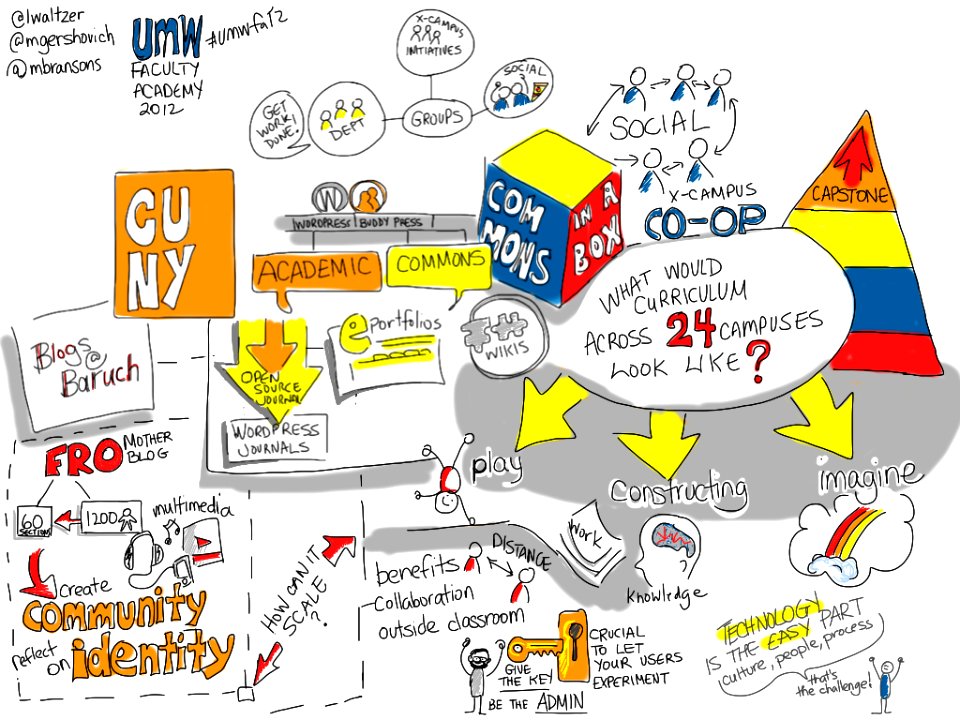 @lwaltzer
@mgershovich
@mbransons
UMW
#umwfa12
FACULTY
ACADEMY
2012
X-CAMPUS
INITIATIVES
SOCIAL
GROUPS
DEPT
GET
WORK
DONE!
SOCIAL
X-CAMPUS
CO-OP
CU
NY
WORDPRESS
BUDDY PRESS
ACADEMIC
COMMONS
COM
MONS
IN A
BOX
CAPSTONE
WHAT WOULD
CURRICULUM
ACROSS 24 CAMPUSES
LOOK LIKE?
Blogs@
Baruch
OPEN
SOURCE
JOURNAL
WORDPRESS
JOURNALS
ePortfolios
WIKIS
play
Constructing
imagine
work
Knowledge
FRO MOTHER
BLOG
60
SECTIONS
1200
multimedia
create
community
reflect
on identity
HOW CAN IT
SCALE
?
DISTANCE
benefits
-Collaboration
outside classroom
GIVE
THE KEY
BE THE ADMIN
CRUCIAL
TO LET
YOUR USERS
EXPERIMENT
TECHNOLOGY
IS THE EASY PART
culture, people, process
that's
the challenge!